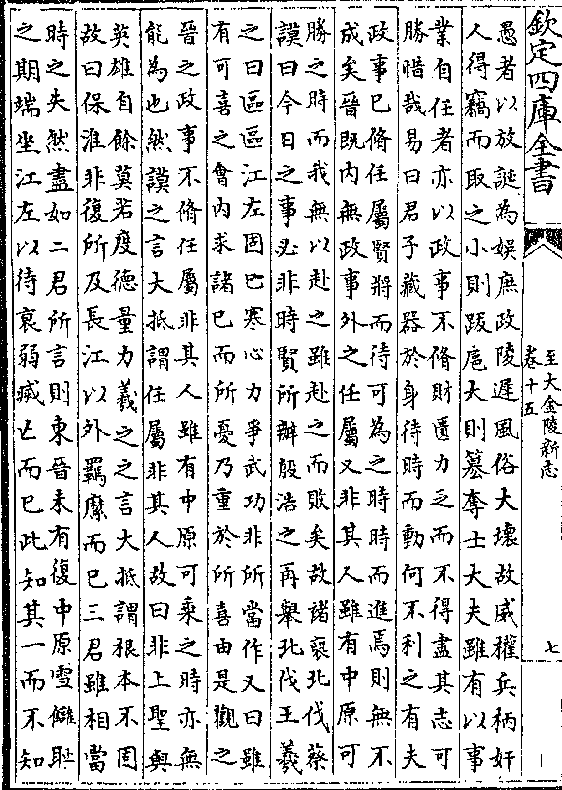 欽定四庫全書
至大金陵新志
卷十五
七
愚者以放誕為娛庶政陵遲風俗大壞故威權兵柄奸
人得竊而取之小則跋扈大則篡奪士大夫雖有以事
業自任者亦以政事不脩財匱力乏而不得盡其志可
勝惜哉易曰君子藏器於身待時而動何不利之有夫
政事已脩任屬賢將而待可為之時時而進焉則無不
成矣晉既内無政事外之任屬又非其人雖有中原可
勝之時而我無以赴之雖赴之而敗矣故諸裒北伐蔡
謨曰今日之事必非時賢所辦殷浩之再舉北伐王羲
之曰區區江左固已寒心力爭武功非所當作又曰雖
有可喜之會内求諸已而所憂乃重於所喜由是觀之
晉之政事不脩任屬非其人雖有中原可乘之時亦無
能為也然謨之言大抵謂任屬非其人故曰非上聖與
英雄自餘莫若度德量力羲之之言大抵謂根本不固
故曰保淮非復所及長江以外羈縻而已三君雖相當
時之失然盡如二君所言則東晉未有復中原雪讎恥
之期端坐江左以待衰弱滅亡而已此知其一而不知